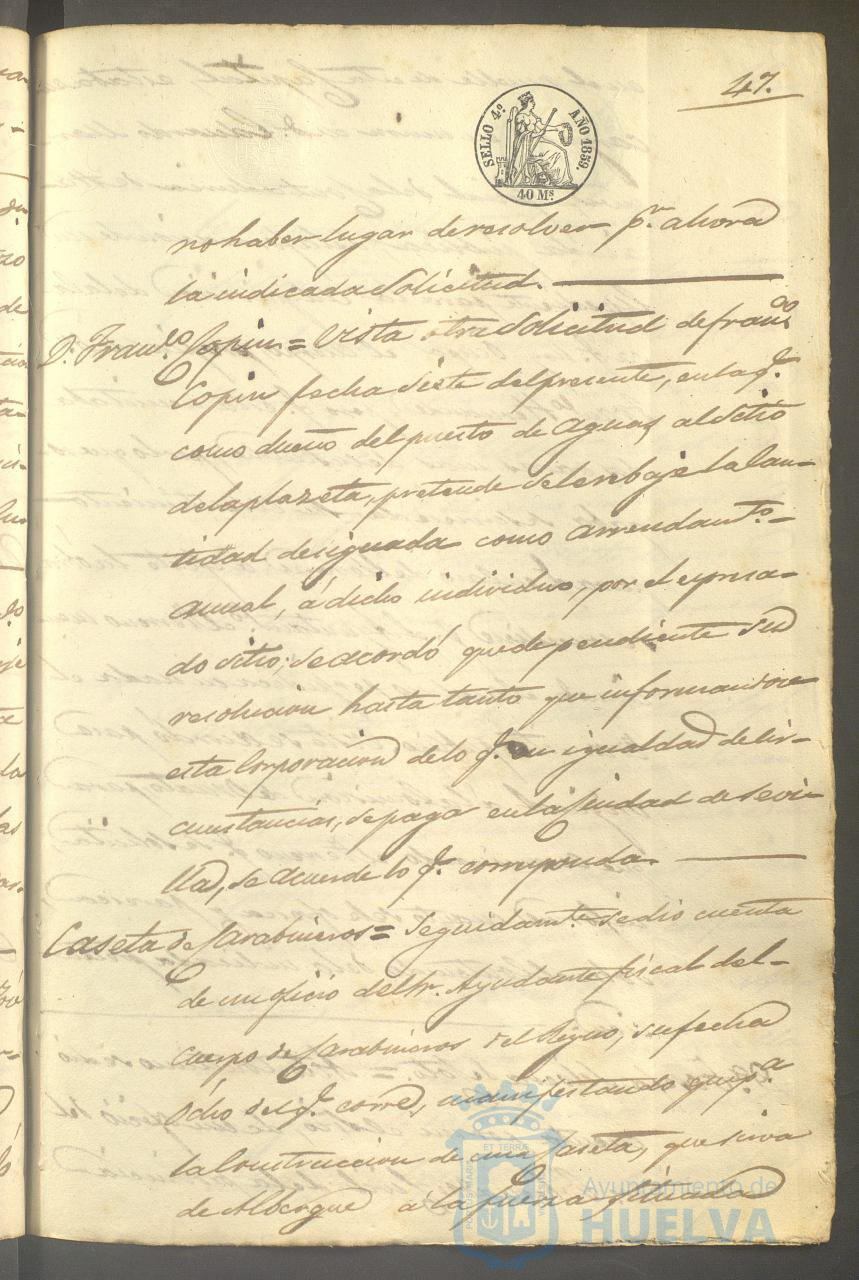 47.
SELLO 4.º AÑO 1859.
40 Mˢ
no haber lugar de resolver p.r ahora
la indicada solicitud.
D. Fran.co Copin = Vista otra solicitud de fran.co
Copin fecha siete del presente, en la q.e
como dueño del puesto de aguas, al sitio
de la plazeta, pretende se le rebaje la can-
tidad designada como arrendam.to
anual, á dicho individuo, por el espresa-
do sitio; se acordó quede pendiente su
resolucion hasta tanto que informandose
esta Corporacion de lo q.e en igualdad de cir-
cunstancias, se paga en la Ciudad de Sevi-
lla, se acuerde lo q.e corresponda.
Caseta de Carabineros = Seguidam.te se dio cuenta
de un oficio del Sr. Ayudante fiscal del
cuerpo de Carabineros del Reyno, su fecha
del q.e corre, manifestando que p.a
la Construccion de una Caseta, que sirva
de Albergue á la fuerza
ET TERRÆ
Ayuntamiento de
HUELVA